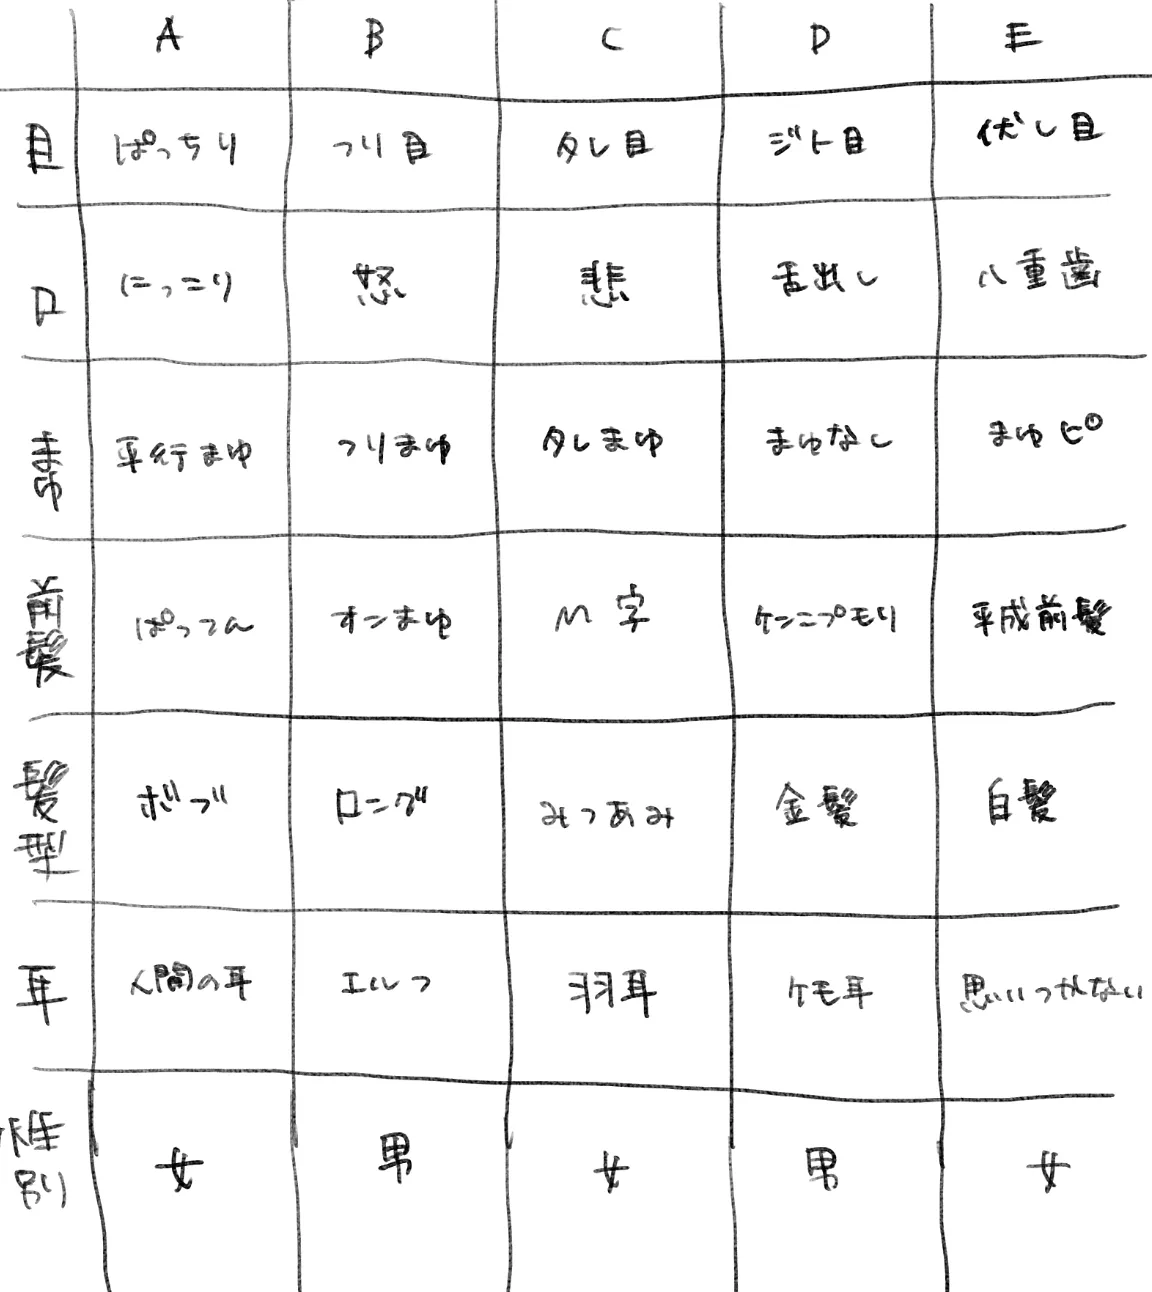 A B C D E
目 ぱっちり つり目 タレ目 ジト目 伏し目
口 にっこり 怒 悲 舌出し 八重歯
まゆ 平行まゆ つりまゆ タレまゆ まゆなし まゆピ
前髪 ぱっつん オンまゆ M字 ケンニプモリ 平成前髪
髪型 ボブ ロング みつあみ 金髪 白髪
耳 人間の耳 エルフ 羽耳 ケモ耳 思いつかない
性別 女 男 女 男 女